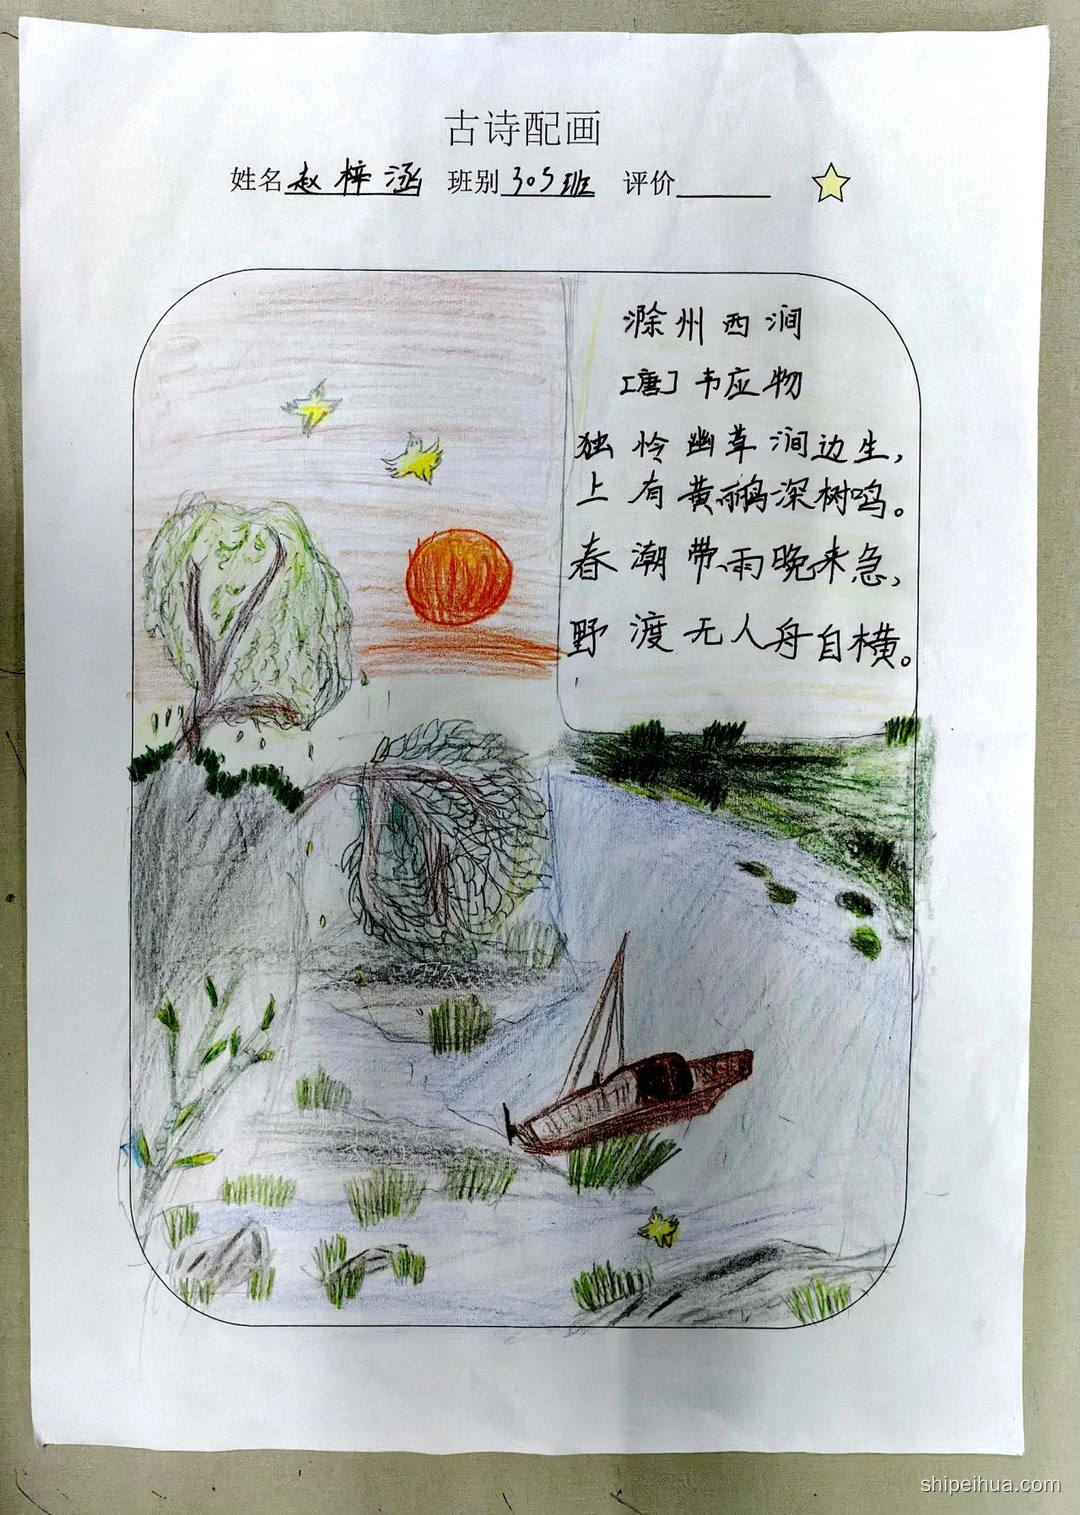 古诗配画
姓名赵梓涵 班别305班 评价
滁州西涧
[唐] 韦应物
独怜幽草涧边生,
上有黄鹂深树鸣。
春潮带雨晚来急,
野渡无人舟自横。
shipeihua.com